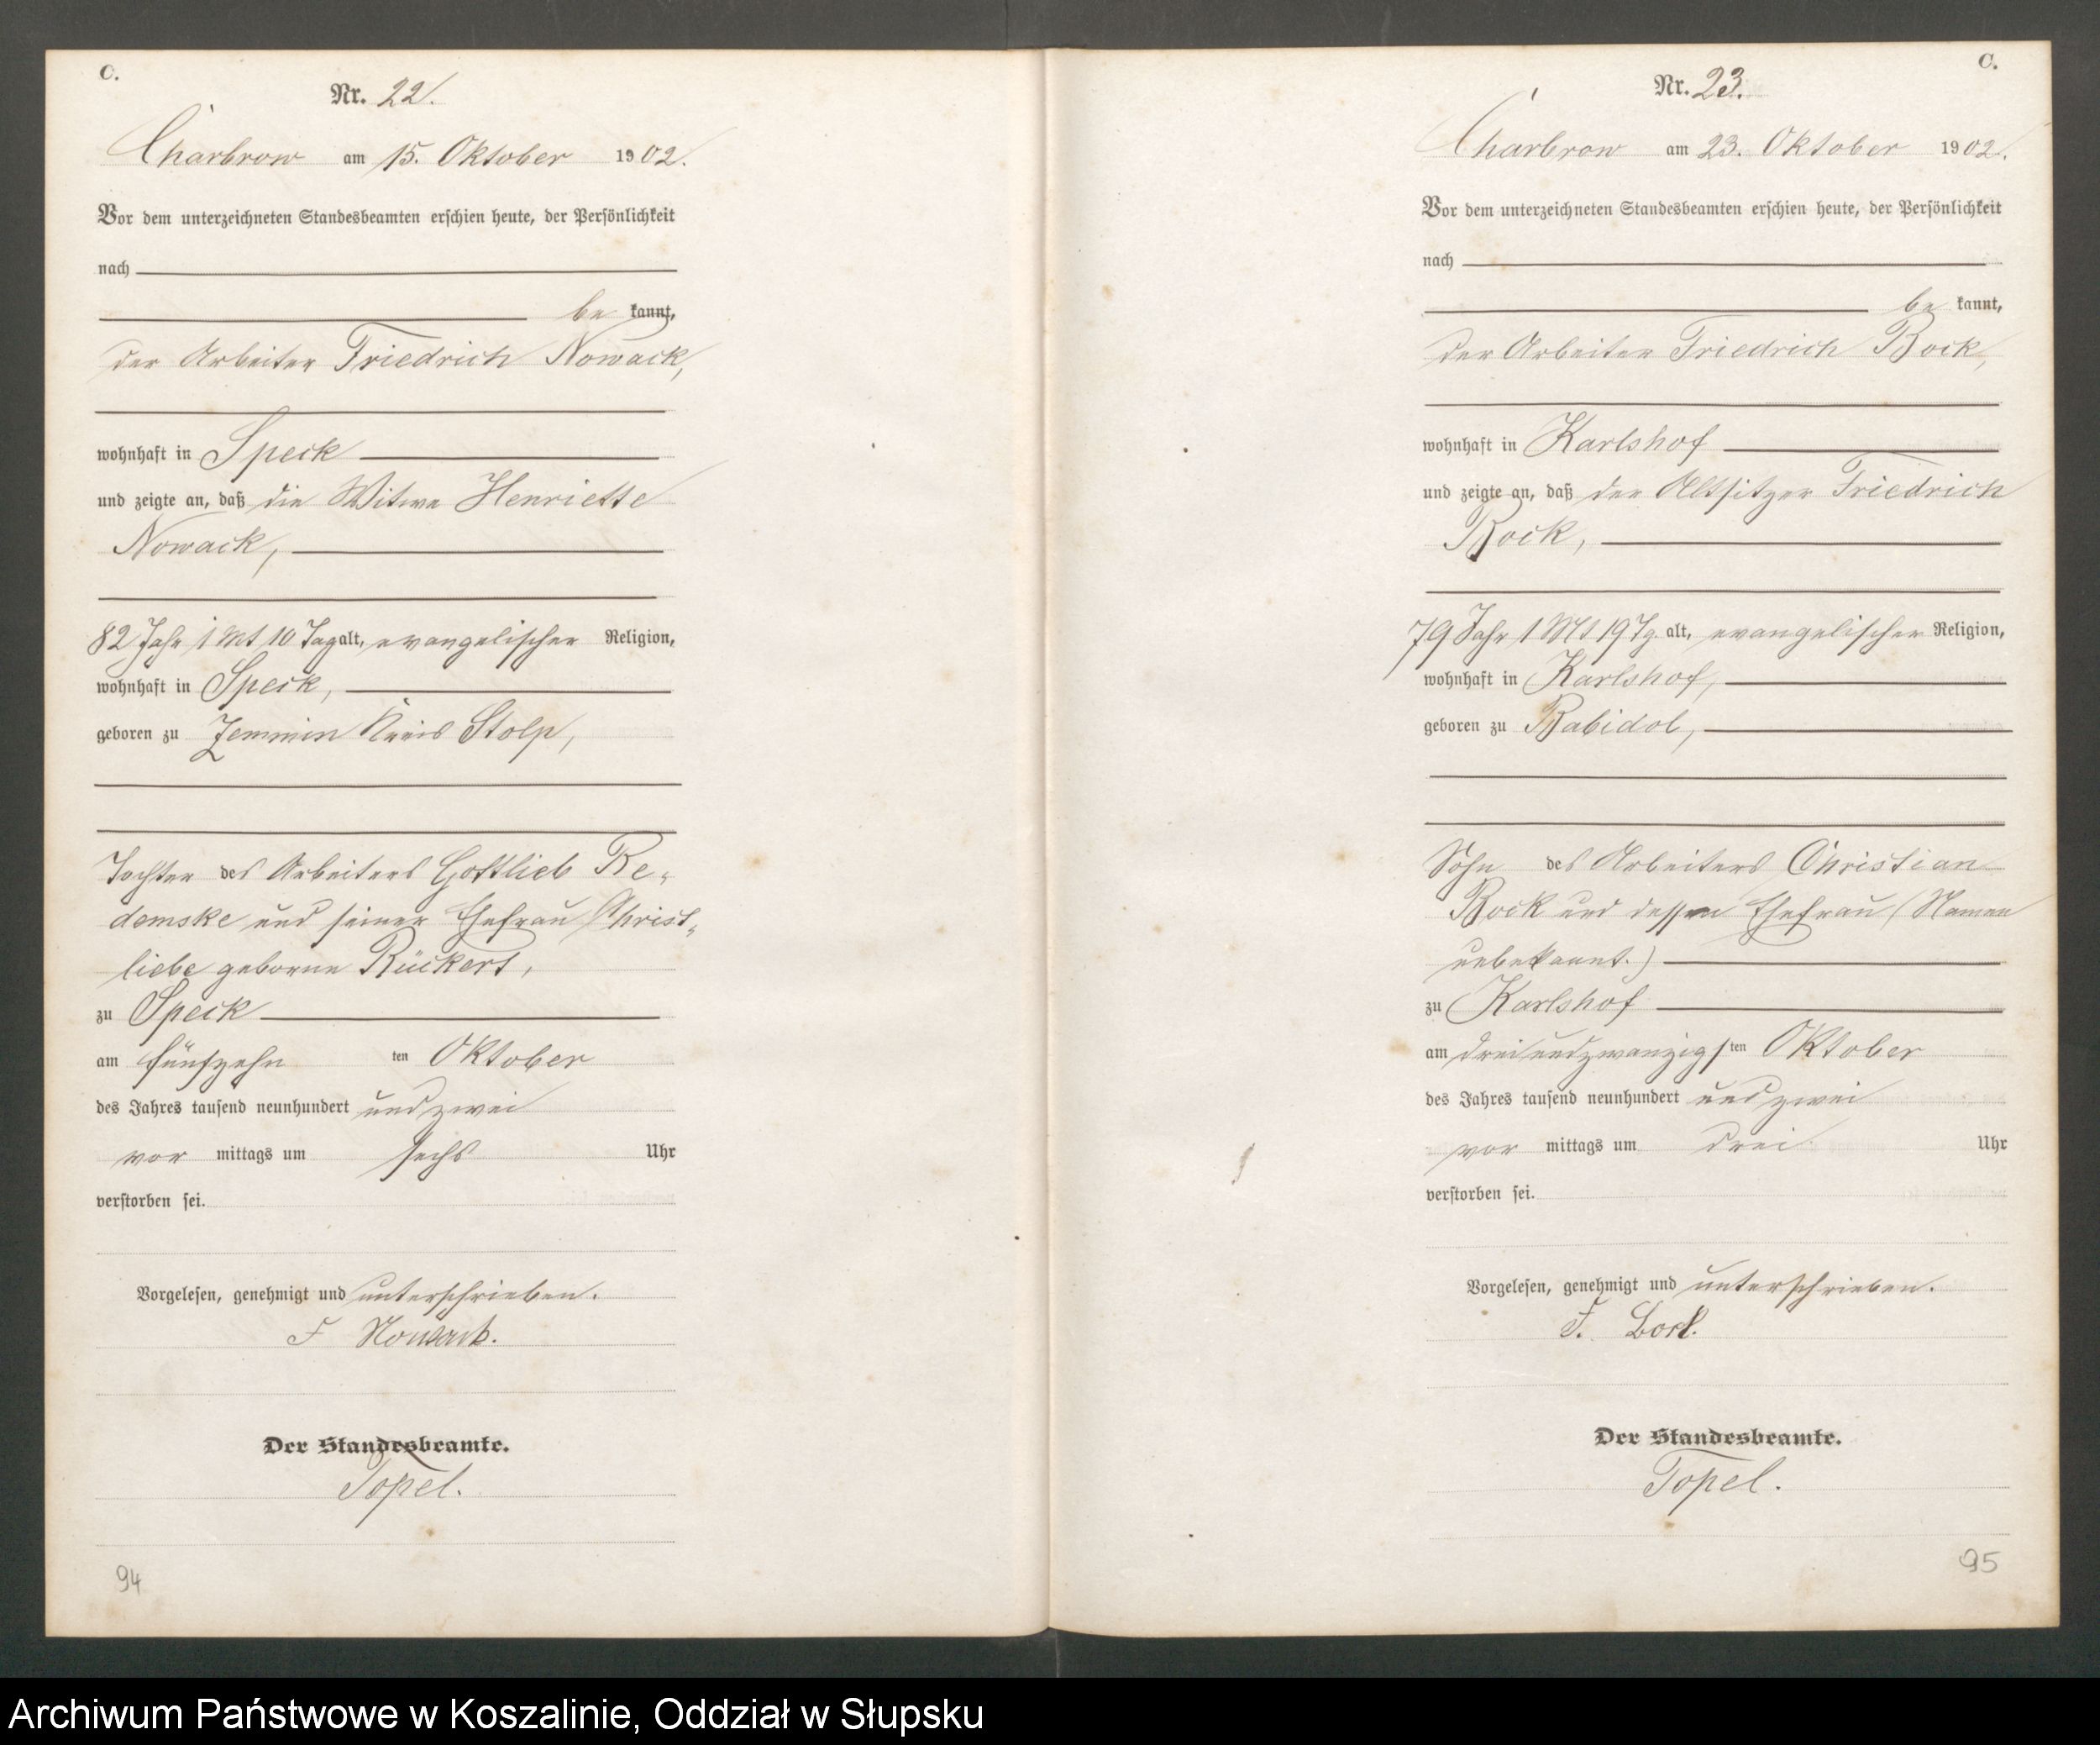 C.
Nr. 22.
Charbrow am 15. Oktober 1902.
Vor dem unterzeichneten Standesbeamten erschien heute, der Persönlichkeit
nach
be kannt,
der Arbeiter Friedrich Nowack,
wohnhaft in Speck
und zeigte an, daß die Witwe Henriette
Nowack,
82 Jahr 1 Mt 10 Tag alt, evangelischer Religion,
wohnhaft in Speck,
geboren zu Zemmin Kreis Stolp,
Tochter des Arbeiters Gottlieb Re-
demske und seiner Ehefrau Christ-
liebe geborne Rückert,
zu Speck
am fünfzehn ten Oktober
des Jahres tausend neunhundert und zwei
vor mittags um sechs Uhr
verstorben sei.
Vorgelesen, genehmigt und unterschrieben.
F Nowack.
Der Standesbeamte.
Topel.
94
C.
Nr. 23.
Charbrow am 23. Oktober 1902.
Vor dem unterzeichneten Standesbeamten erschien heute, der Persönlichkeit
nach
be kannt,
der Arbeiter Friedrich Bock,
wohnhaft in Karlshof
und zeigte an, daß der Altsitzer Friedrich
Bock,
79 Jahr 1 Mt 19 Tg. alt, evangelischer Religion,
wohnhaft in Karlshof,
geboren zu Babidol,
Sohn des Arbeiters Christian
Bock und dessen Ehefrau (Namen
unbekannt.)
zu Karlshof
am dreiundzwanzigsten Oktober
des Jahres tausend neunhundert und zwei
vor mittags um drei Uhr
verstorben sei.
Vorgelesen, genehmigt und unterschrieben.
F. Bock.
Der Standesbeamte.
Topel.
95
Archiwum Państwowe w Koszalinie, Oddział w Słupsku